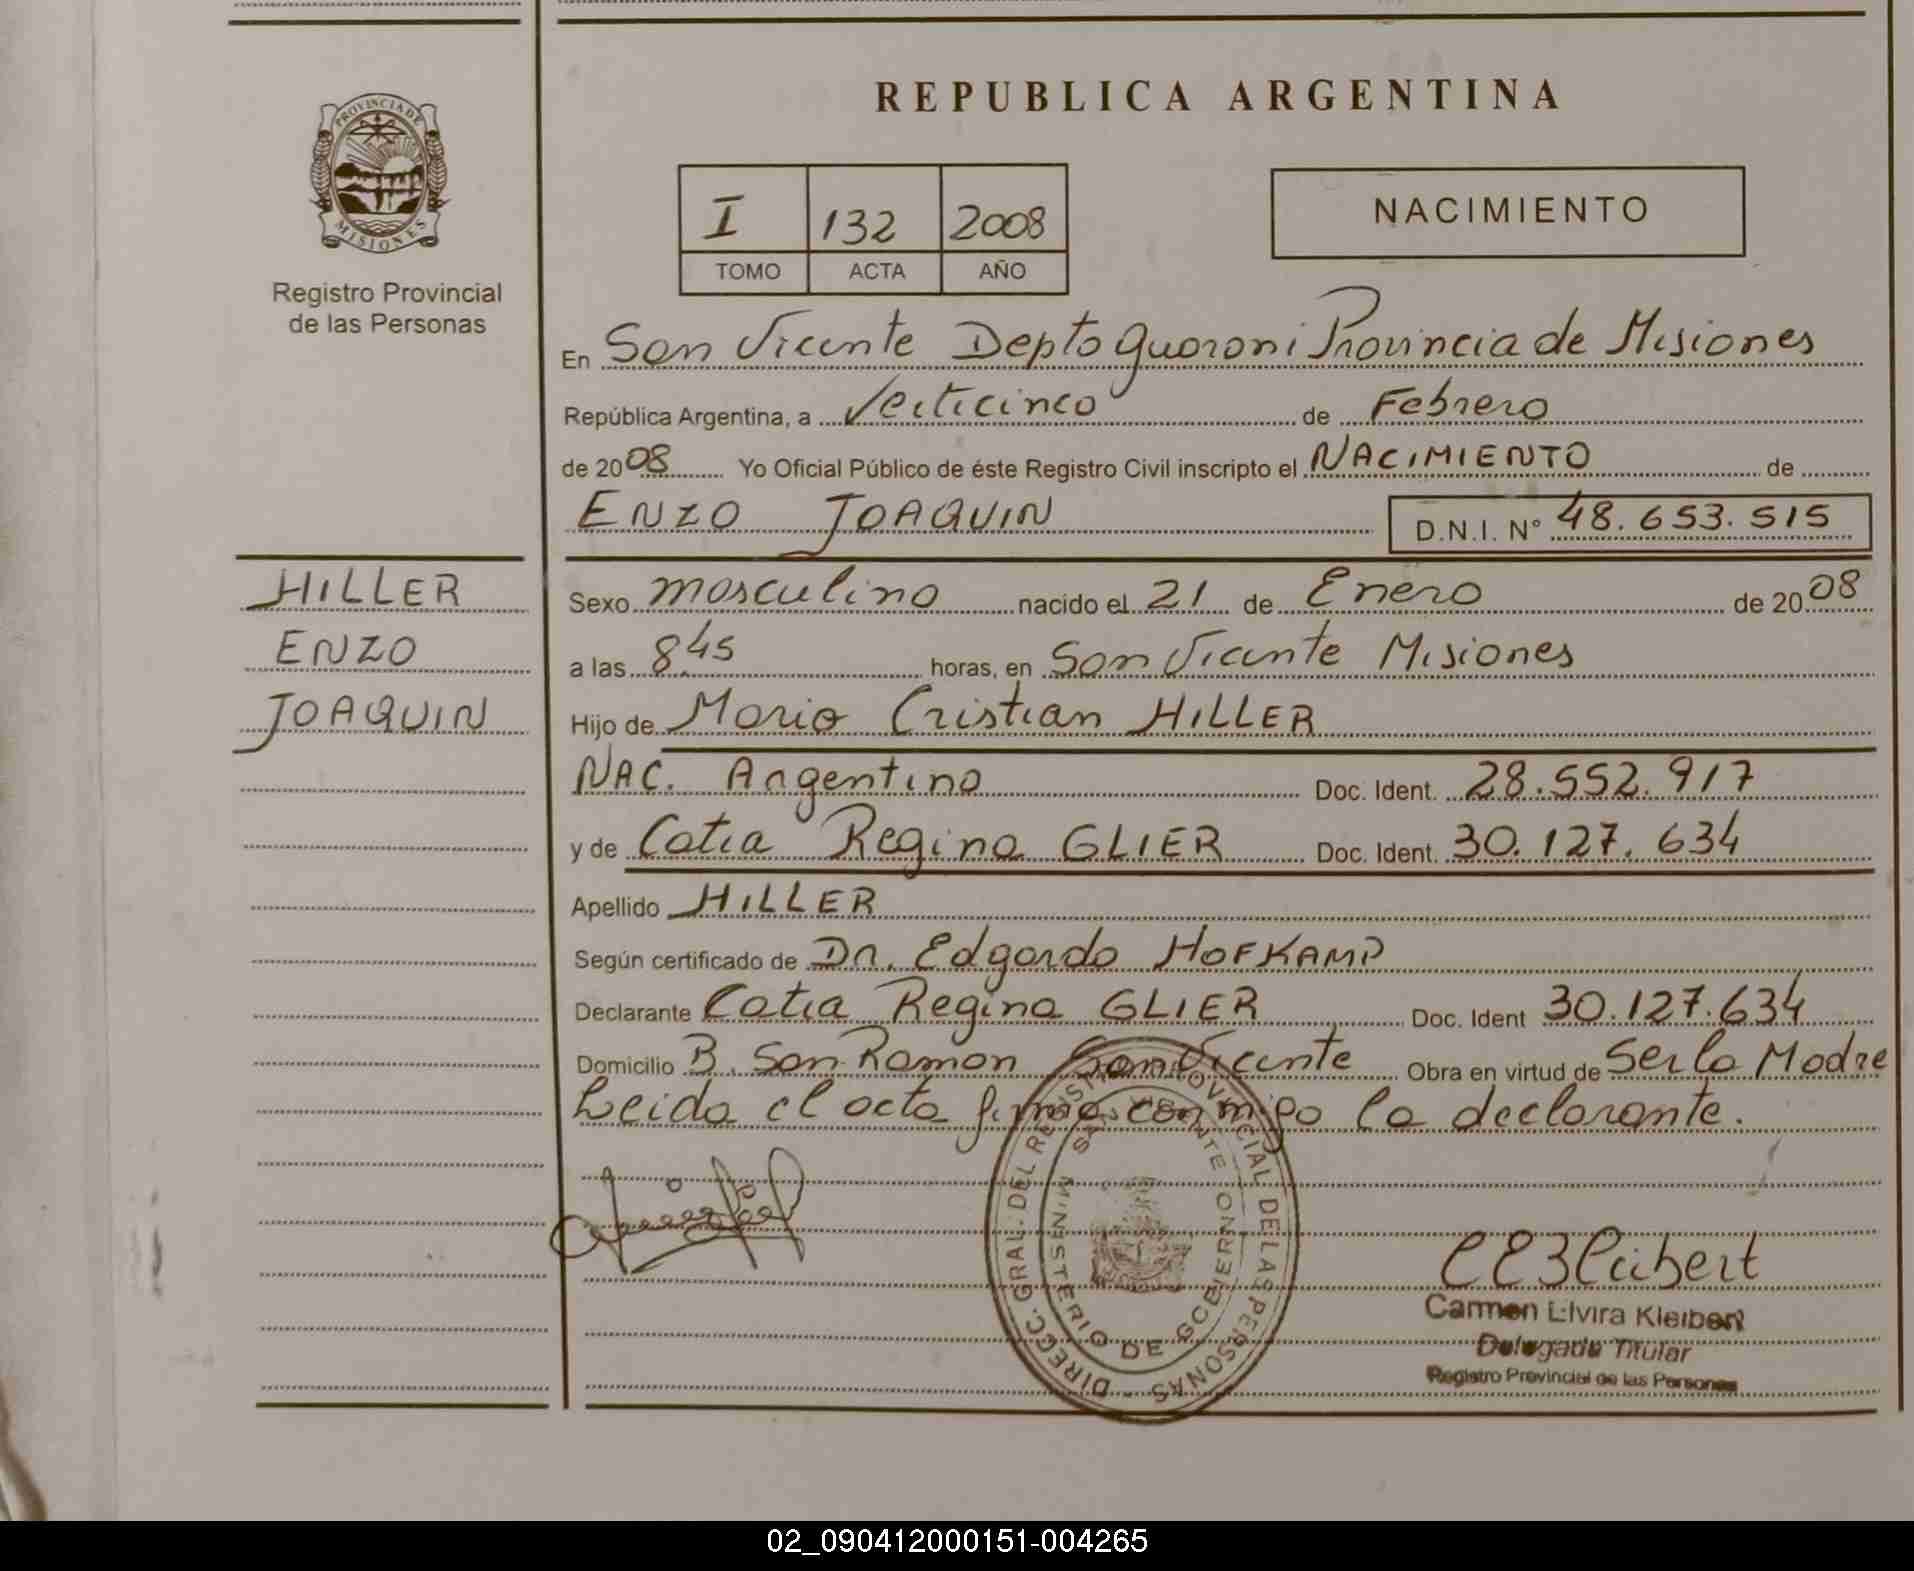 PROVINCIA DE
MISIONES
Registro Provincial
de las Personas
REPUBLICA ARGENTINA
I 132 2008
TOMO ACTA AÑO
NACIMIENTO
En San Vicente Depto Guarani Provincia de Misiones
República Argentina, a Veiticinco de Febrero
de 2008 Yo Oficial Público de éste Registro Civil inscripto el NACIMIENTO de
ENZO JOAQUIN D.N.I. N° 48.653.515
HILLER
ENZO
JOAQUIN
Sexo masculino nacido el 21 de Enero de 2008
a las 8,45 horas, en San Vicente Misiones
Hijo de Mario Cristian HILLER
NAC. Argentino Doc. Ident. 28.552.917
y de Catia Regina GLIER Doc. Ident. 30.127.634
Apellido HILLER
Según certificado de Dr. Edgardo HOFKAMP
Declarante Catia Regina GLIER Doc. Ident 30.127.634
Domicilio B. San Ramon San Vicente Obra en virtud de Ser la Madre
Leida el acta firma conmigo la declarante.
DIRECC. GRAL. DEL REGISTRO PROVINCIAL DE LAS PERSONAS
SAN VICENTE
MINISTERIO DE GOBIERNO
Carmen Elvira Kleibert
Delegada Titular
Registro Provincial de las Personas
02_090412000151-004265